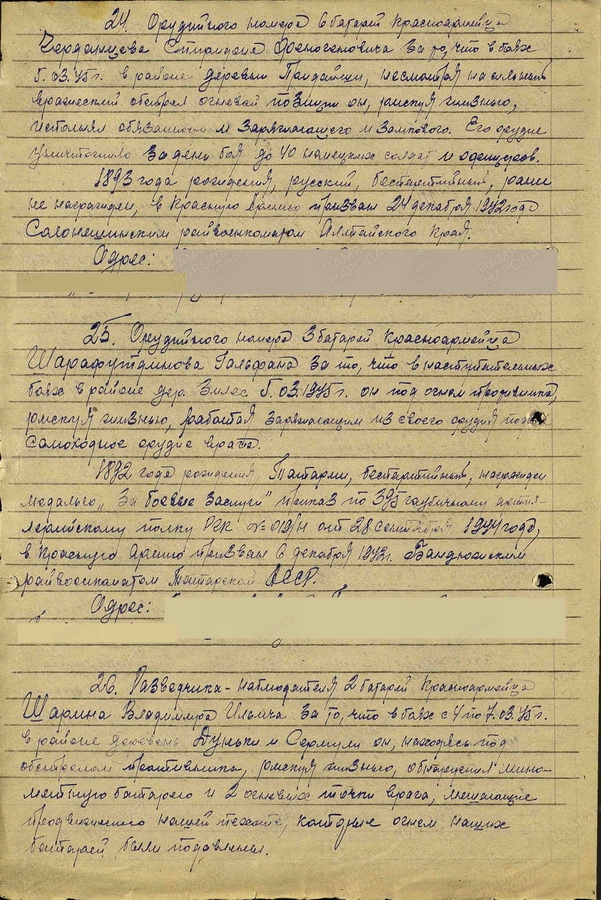 24. Орудийного номера 6 батареи красноармейца
Черданцева Спиридона за то, что в боях
5.03.45г. в районе деревни несмотря на сильный
вражеский обстрел огневой позиции он, рискуя жизнью,
исполнял обязанности заряжающего и замкового. Его орудие
уничтожило за день боя до 40 немецких солдат и офицеров.
1893 года рождения, русский, беспартийный, ранее
не награжден, в Красную Армию призван 24 декабря 1942 года
Солонешинским райвоенкоматом Алтайского края.
Адрес:
25. Орудийного номера 3 батареи красноармейца
Шарафутдинова за то, что в наступательных
боях в районе дер. 5.03.1945г. он под огнем противника,
рискуя жизнью, работая заряжающим из своего орудия
самоходное орудие врага.
1892 года рождения, беспартийный, награжден
медалью „За боевые заслуги" приказ по 395 гаубичному артил-
лерийскому полку РГК №019/н от 28 сентября 1944 года,
в Красную армию призван 6 декабря 1942г. Бондюжским
райвоенкоматом Татарской АССР.
Адрес:
26. Разведчика-наблюдателя 2 батареи красноармейца
Шарина Владимира Ильича за то, что в боях с 4 по 7.03.45г.
в районе деревень и он, находясь под
обстрелом противника, рискуя жизнью, обнаружил мино-
метную батарею и 2 огневых точки врага, мешающие
продвижению нашей пехоте, которые огнем наших
батарей были подавлены.